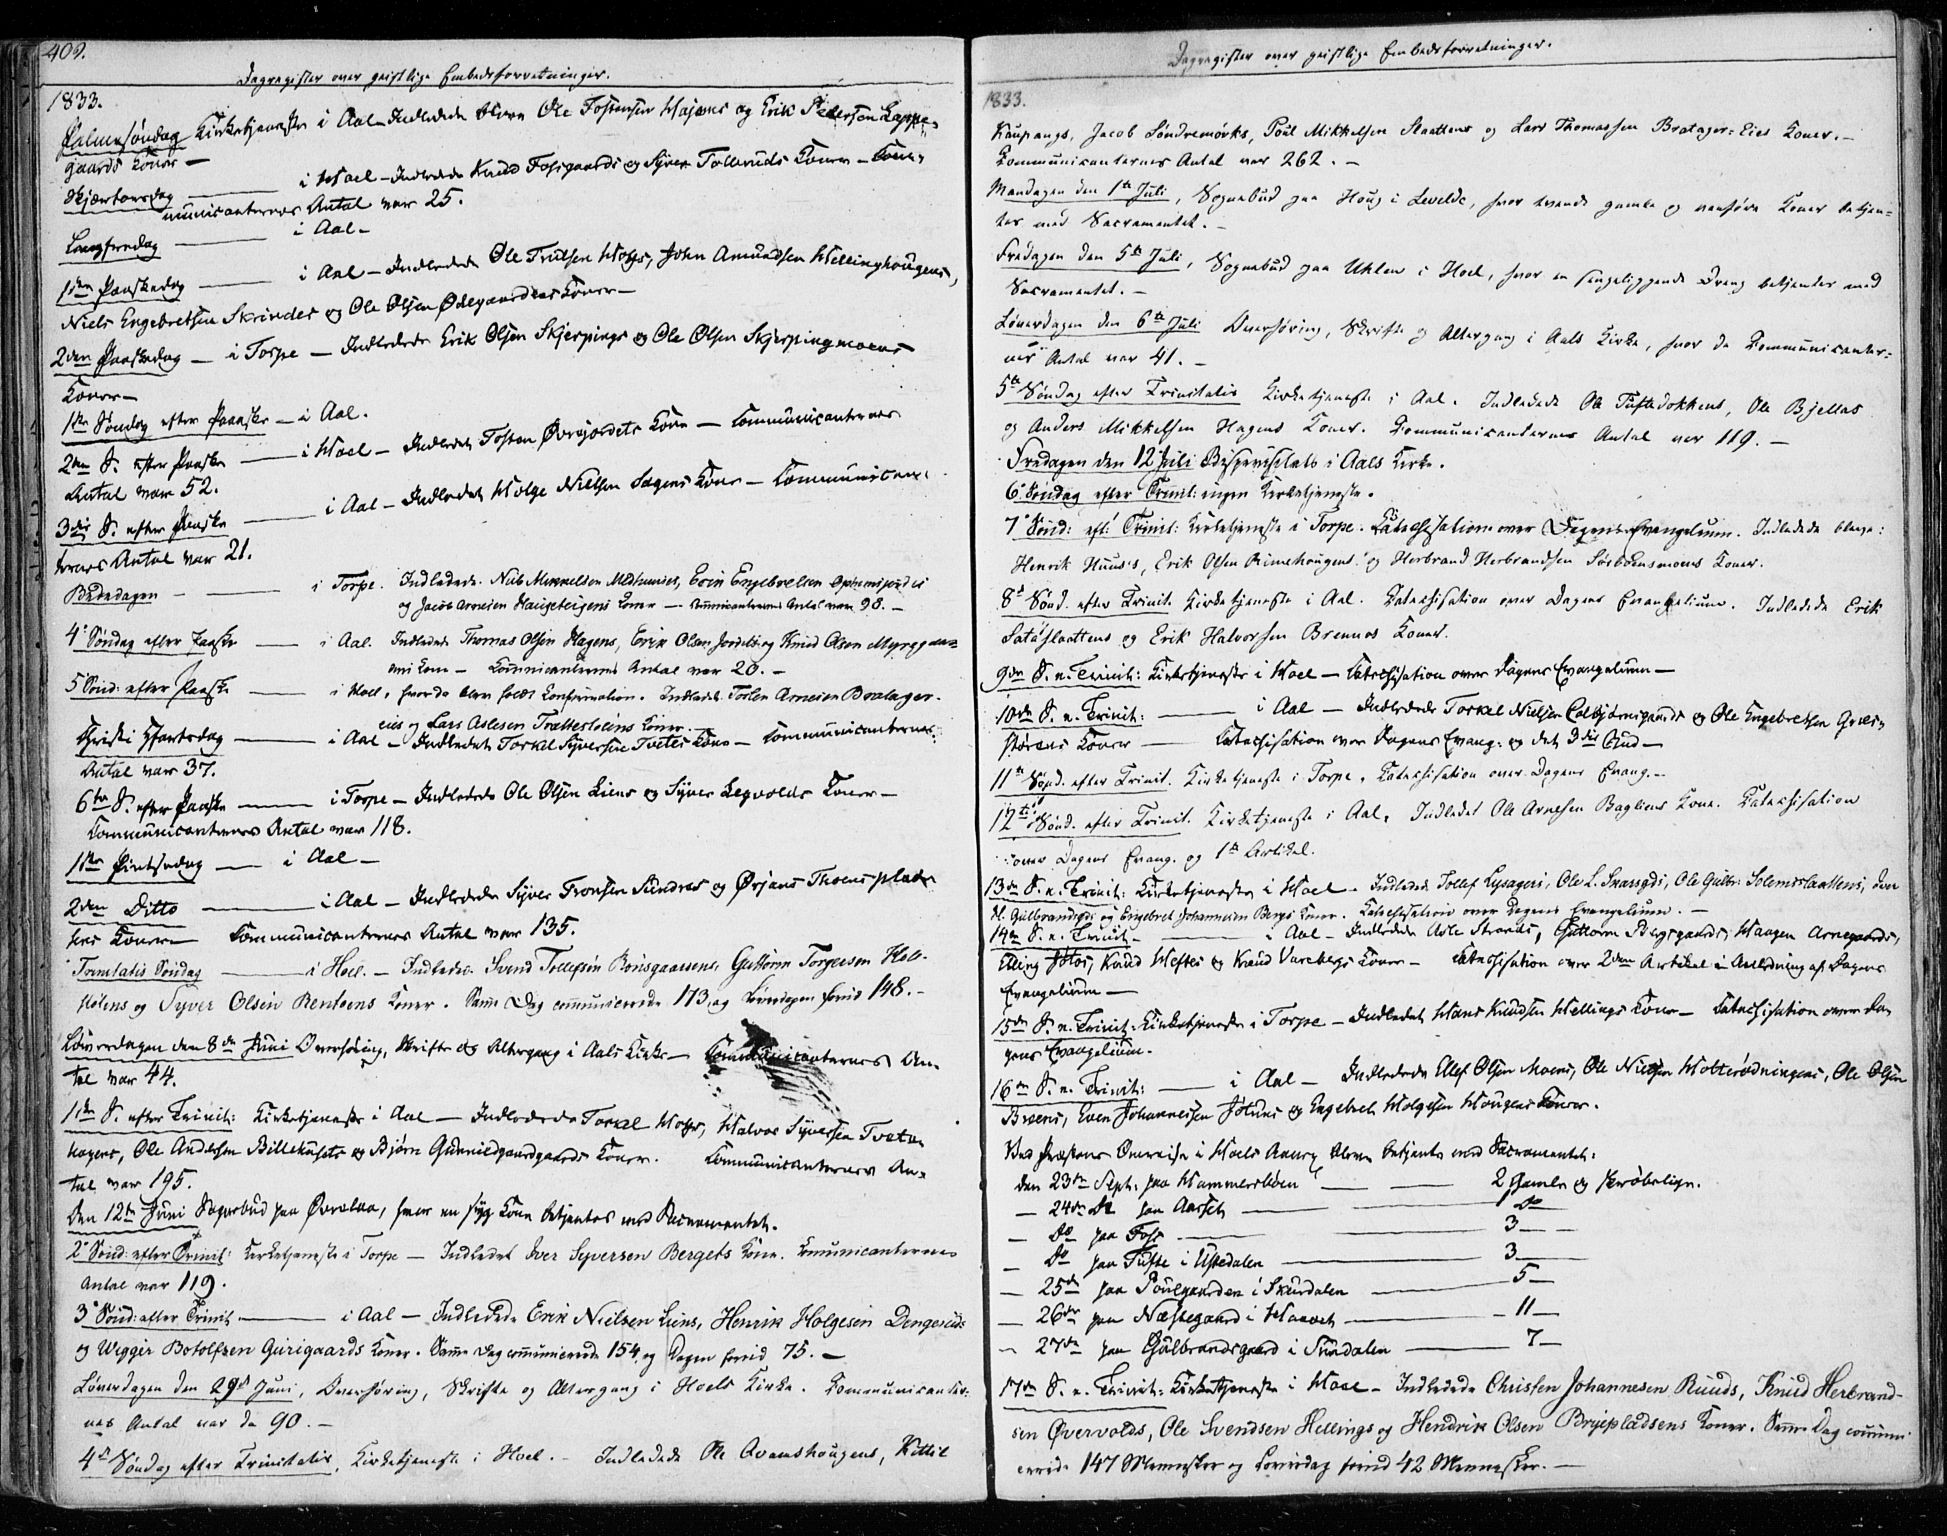 402.
Dagregister over geistlige Embedsforretninger.
1833.
Palmesøndag Kirketjeneste i Aal – Indledede bleve Ole Tostensen og Erik Pedersen Leppe-
gaards Koner –
Skjærtorsdag — i Hoel – Indledede Knud Fossgaards og Syver Tolleruds Koner – Com-
municanternes Antal var 25.
Langfredag — i Aal –
1ste Paaskedag — i Aal – Indledede Ole Trulsen Holes, John Amundsen Hellinghougens,
Niels Engebretsen Skrindes og Ole Olsen Ødegaardens Koner –
2den Paaskedag – i Torpe – Indledede Erik Olsen Skjerpings og Ole Olsen Skjerpingmoens
Koner –
1ste Søndag efter Paaske – i Aal.
2den S. efter Paaske — i Hoel – Indledet Tosten Øvrejordets Kone – Communicanternes
Antal var 52.
3die S. efter Paaske — i Aal – Indledet Holge Nielsen Kone – Communican-
ternes Antal var 21.
Bededagen — i Torpe. Indledede Niels Engebretsen
og Jacob Arnesen Haugeteigens Koner – Communicanternes Antal var 98. –
4' Søndag efter Paaske — i Aal. Indledede Thomas Olsen Hagens, Erik Olsen og Knud Olsen
Koner – Communicanternes Antal var 20. –
5 Sønd: efter Paaske — i Hoel, hvor da blev holdt Confirmation. Indledede Torsten Arnesen Bratager-
eies og Lars Aslesen Trættestølens Koner.
Christi Himmelfartsdag — i Aal – Indledet Torkel Syversen Tvetes Kone – Communicanternes
Antal var 37.
6te S. efter Paaske — i Torpe – Indledede Ole Olsen Liens og Syver Legvolds Koner –
Communicanternes Antal var 118.
1ste Pintsedag — i Aal –
2den Ditto — i Aal – Indledede Syver Tronsen Sundres og Ørjans Thoensplads-
Koner – Communicanternes Antal var 135.
Trinitatis Søndag — i Hoel. – Indledede Svend Tollefsen Guttorm Torgersen
og Syver Olsen Renteens Koner. Samme Dag communicerede 173, og Løverdagen forud 148. –
Løverdagen den 8de Juni Overhøring, Skrifte og Altergang i Aals Kirke – Communicanternes An-
tal var 44.
1ste S. efter Trinit: Kirketjeneste i Aal – Indledede Torkel Holes, Halvor Syversen Tvete-
hagens, Ole Andersen Billehusets og Bjørn Gunnildgaardgaards Koner. Communicanternes An-
tal var 195.
Den 12te Juni Sognebud paa Øvrelaa, hvor en syg Kone betjentes med Sacramentet.
2' Sønd: efter Trinit: Kirketjeneste i Torpe – Indledet Iver Syversen Bergets Kone. Communicanternes
Antal var 119.
3' Sønd: efter Trinit. — i Aal – Indledede Erik Nielsen Liens, Henrik Holgesen Dengeruds
og Wiggir Botolfsen Gurigaards Koner. Samme Dag communicerede 154, og Dagen forud 75. –
Løverdagen den 29de Juni, Overhøring, Skrifte og Altergang i Hoels Kirke. Communicanter-
nes Antal var da 90. –
4de Søndag efter Trinitatis, Kirketjeneste i Hoel. – Indledede Ole Qvamshougens, Kittil
Dagregister over geistlige Embedsforretninger.
1833.
Kaupangs, Jacob Søndremørks, Poul Mikkelsen Slaattens og Lars Thomassen Bratager-Eies Koner. –
Communicanternes Antal var 262. –
Mandagen den 1ste Juli, Sognebud paa Houg i Levelde, hvor tvende gamle og vanføre Koner betjen-
tes med Sacramentet. –
Fredagen den 5te Juli, Sognebud paa Uhlen i Hoel, hvor en sengeliggende Dreng betjentes med
Sacramentet. –
Løverdagen den 6te Juli Overhøring, Skrifte og Altergang i Aals Kirke, hvor da Communicanter-
nes Antal var 41. –
5te Søndag efter Trinitatis Kirketjeneste i Aal. Indledede Ole Tuftedokkens, Ole Bjellas
og Anders Mikkelsen Hagens Koner. Communicanternes Antal var 119. –
Fredagen den 12 Juli Bispevisitats i Aals Kirke.
6' Søndag efter Trinit: ingen Kirketjeneste.
7' Sønd: eft: Trinit: Kirketjeneste i Torpe. Catechisation over Dagens Evangelium. Indledede bleve:
Henrik Huus's, Erik Olsen Rimehougens og Herbrand Herbrandsen Sørboensmoens Koner.
8de Sønd. efter Trinit. Kirketjeneste i Aal. Catechisation over Dagens Evangelium. Indledede Erik
Sataslaattens og Erik Halvorsen Brennos Koner.
9de S. e. Trinit: Kirketjeneste i Hoel – Catechisation over Dagens Evangelium –
10de S. e. Trinit: — i Aal – Indledede Torkel Nielsen Colbjørnsgaards og Ole Engebretsen
Koner — Catechisation over Dagens Evang: og det 3die Bud –
11te Sønd. efter Trinit. Kirketjeneste i Torpe. Catechisation over Dagens Evang. –
12te Sønd. efter Trinit. Kirketjeneste i Aal. Indledet Ole Arnesen Bagliens Kone. Catechisation
over Dagens Evang. og 1ste Artikel.
13de S. e. Trinit: Kirketjeneste i Hoel – Indledede Tollef Lysageri, Ole L. Ole Gulbr: Solemslaattens, Iver
H. Gulbrandsgds og Engebret Johannesen Bergs Koner. Catechisation over Dagens Evangelium. –
14de S. e. Trinit. — i Aal – Indledede Asle Strands, Guttorm Bergsgaards, Haagen Arnegaards,
Elling Jøtos, Knud Heftes og Knud Varebergs Koner – Catechisation over 2den Artikel i Anledning af Dagens
Evangelium –
15de S. e. Trinit: Kirketjeneste i Torpe – Indledet Hans Knudsen Hellings Kone – Catechisation over Da-
gens Evangelium.
16de S. e. Trinit: — i Aal – Indledede Ellef Olsen Moens, Ole Nielsen Holterødningens, Ole Olsen
Breens, Even Johannesen og Engebret Holgesen Hougens Koner.
Ved Præstens Omreise i Hoels Annex bleve betjente med Sacramentet:
den 23de Sept: paa Hammersbøen — 2 gamle og skrøbelige.
– 24de Do paa Aarset — 1 do
– Do paa Foss — 3 —
– Do paa Tufte i Ustedalen — 3 —
– 25de paa Poulgaarden i Skurdalen — 5 —
– 26de paa Næstegaard i Hovet — 11 —
– 27de paa Gulbrandsgaard i Sundalen — 7 —
17de S. e. Trinit: Kirketjeneste i Hoel – Indledede Christen Johannesen Ruuds, Knud Herbrand-
sen Øvervolds, Ole Svendsen Hellings og Hendrik Olsen Bryepladsens Koner. Samme Dag commu-
cerede 147 Mennesker og Løverdag forud 42 Mennesker. —